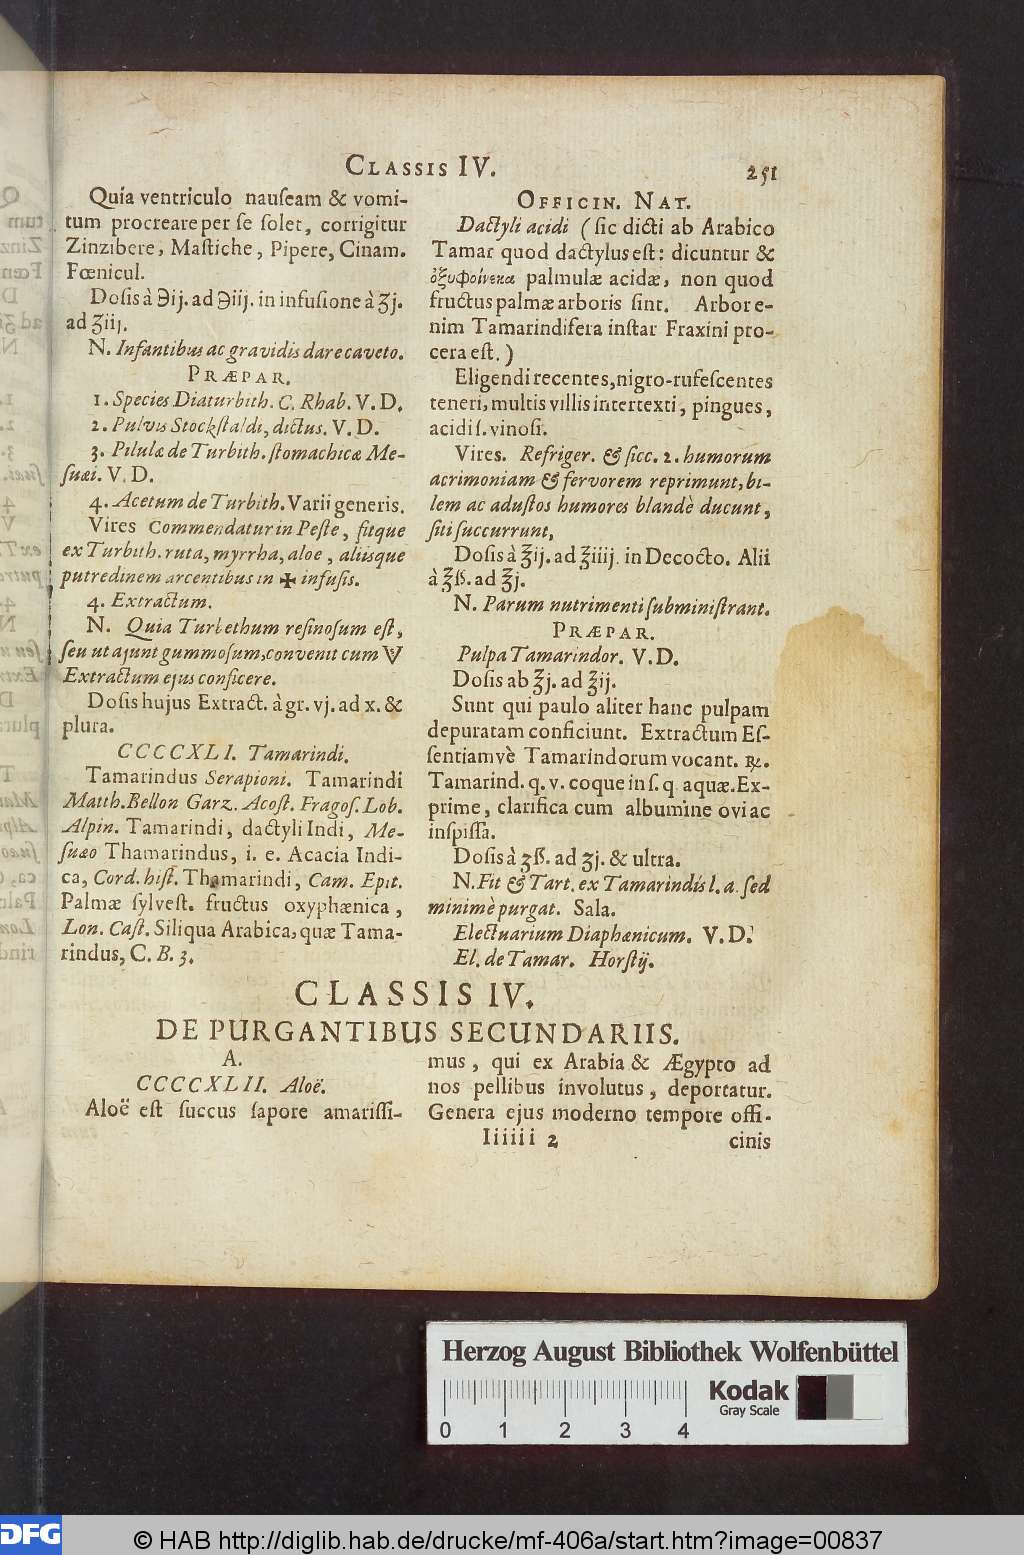 CLASSIS IV. 251
Quia ventriculo nauſeam & vomi-
tum procreare per ſe ſolet, corrigitur
Zinzibere, Maſtiche, Pipere, Cinam.
Fœnicul.
Doſis à ℈ij. ad ℈iij. in infuſione à ʒj.
ad ʒiij.
N. Infantibus ac gravidis dare caveto.
PRÆPAR.
1. Species Diaturbith. C. Rhab. V. D.
2. Pulvis Stockſtaldi, dictus. V. D.
3. Pilulæ de Turbith. ſtomachicæ Me-
ſuæi. V. D.
4. Acetum de Turbith. Varii generis.
Vires Commendatur in Peſte, fitque
ex Turbith. ruta, myrrha, aloe, aliisque
putredinem arcentibus in ✠ infuſis.
4. Extractum.
N. Quia Turbethum reſinoſum eſt,
ſeu ut ajunt gummoſum, convenit cum
Extractum ejus conficere.
Doſis hujus Extract. à gr. vj. ad x. &
plura.
CCCCXLI. Tamarindi.
Tamarindus Serapioni. Tamarindi
Matth. Bellon Garz. Acoſt. Fragoſ. Lob.
Alpin. Tamarindi, dactyli Indi, Me-
ſuæo Thamarindus, i. e. Acacia Indi-
ca, Cord. hiſt. Thamarindi, Cam. Epit.
Palmæ ſylveſt. fructus oxyphænica,
Lon. Caſt. Siliqua Arabica, quæ Tama-
rindus, C. B. 3.
OFFICIN. NAT.
Dactyli acidi (ſic dicti ab Arabico
Tamar quod dactylus eſt: dicuntur &
ὀξυφοίνικα palmulæ acidæ, non quod
fructus palmæ arboris ſint. Arbor e-
nim Tamarindifera inſtar Fraxini pro-
cera eſt.)
Eligendi recentes, nigro-rufeſcentes
teneri, multis villis intertexti, pingues,
acidi ſ. vinoſi.
Vires. Refriger. & ſicc. 2. humorum
acrimoniam & fervorem reprimunt, bi-
lem ac aduſtos humores blandè ducunt,
ſiti ſuccurrunt,
Doſis à ℥ij. ad ℥iiij. in Decocto. Alii
à ℥ß. ad ℥j.
N. Parum nutrimenti ſubminiſtrant.
PRÆPAR.
Pulpa Tamarindor. V. D.
Doſis ab ℥j. ad ℥ij.
Sunt qui paulo aliter hanc pulpam
depuratam conficiunt. Extractum Eſ-
ſentiamvè Tamarindorum vocant. ℞.
Tamarind. q. v. coque in ſ. q. aquæ. Ex-
prime, clarifica cum albumine ovi ac
inſpiſſa.
Doſis à ʒß. ad ʒj. & ultra.
N. Fit & Tart. ex Tamarindis l. a. ſed
minimè purgat. Sala.
Electuarium Diaphœnicum. V. D.
El. de Tamar. Horſtij.
CLASSIS IV.
DE PURGANTIBUS SECUNDARIIS.
A.
CCCCXLII. Aloë.
Aloë eſt ſuccus ſapore amariſſi-
mus, qui ex Arabia & Ægypto ad
nos pellibus involutus, deportatur.
Genera ejus moderno tempore offi-
Iiiiii 2 cinis
Herzog August Bibliothek Wolfenbüttel
Kodak
Gray Scale
0 1 2 3 4
DFG
© HAB http://diglib.hab.de/drucke/mf-406a/start.htm?image=00837